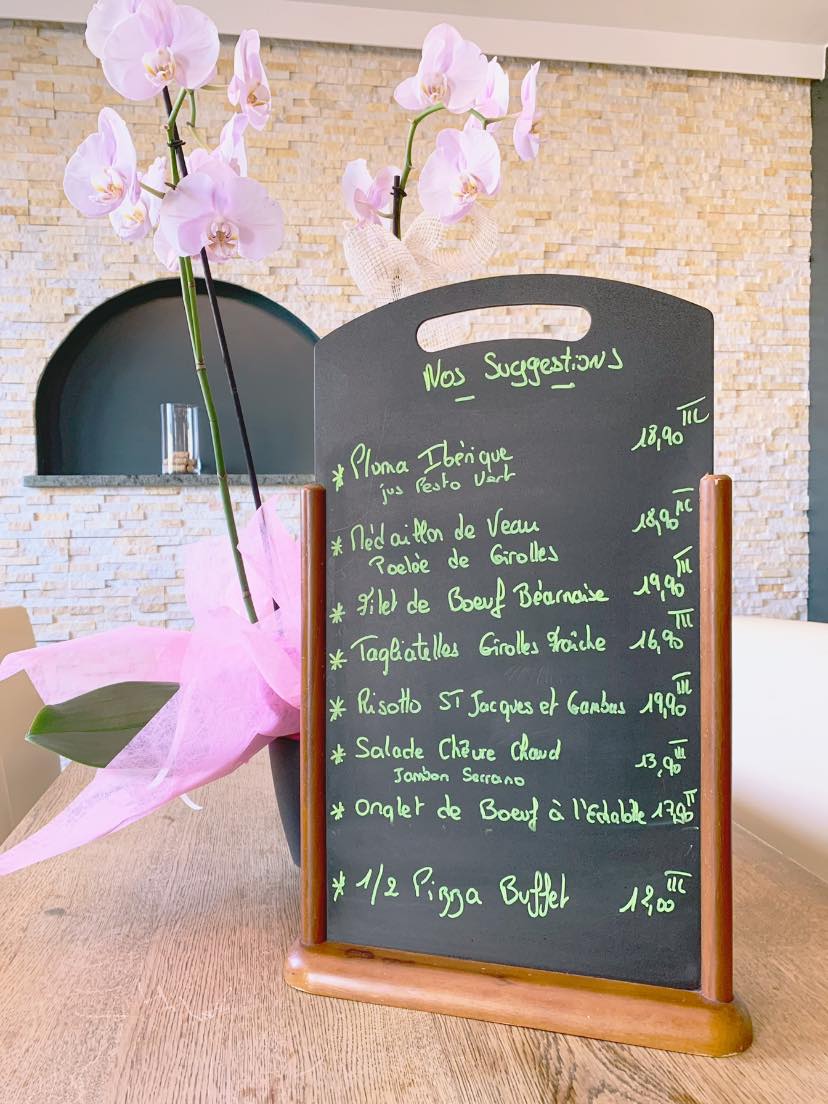 Nos Suggestions
* Pluma Ibérique 18,90
jus Pesto Vert
* Médaillon de Veau 18,90
Poelée de Girolles
* Filet de Boeuf Béarnaise 19,90
* Tagliatelles Girolles fraîche 16,90
* Risotto ST Jacques et Gambas 19,90
* Salade Chèvre Chaud 13,90
Jambon Serrano
* Onglet de Boeuf à l'Echalotte 17,90
* 1/2 Pizza Buffet 12,00